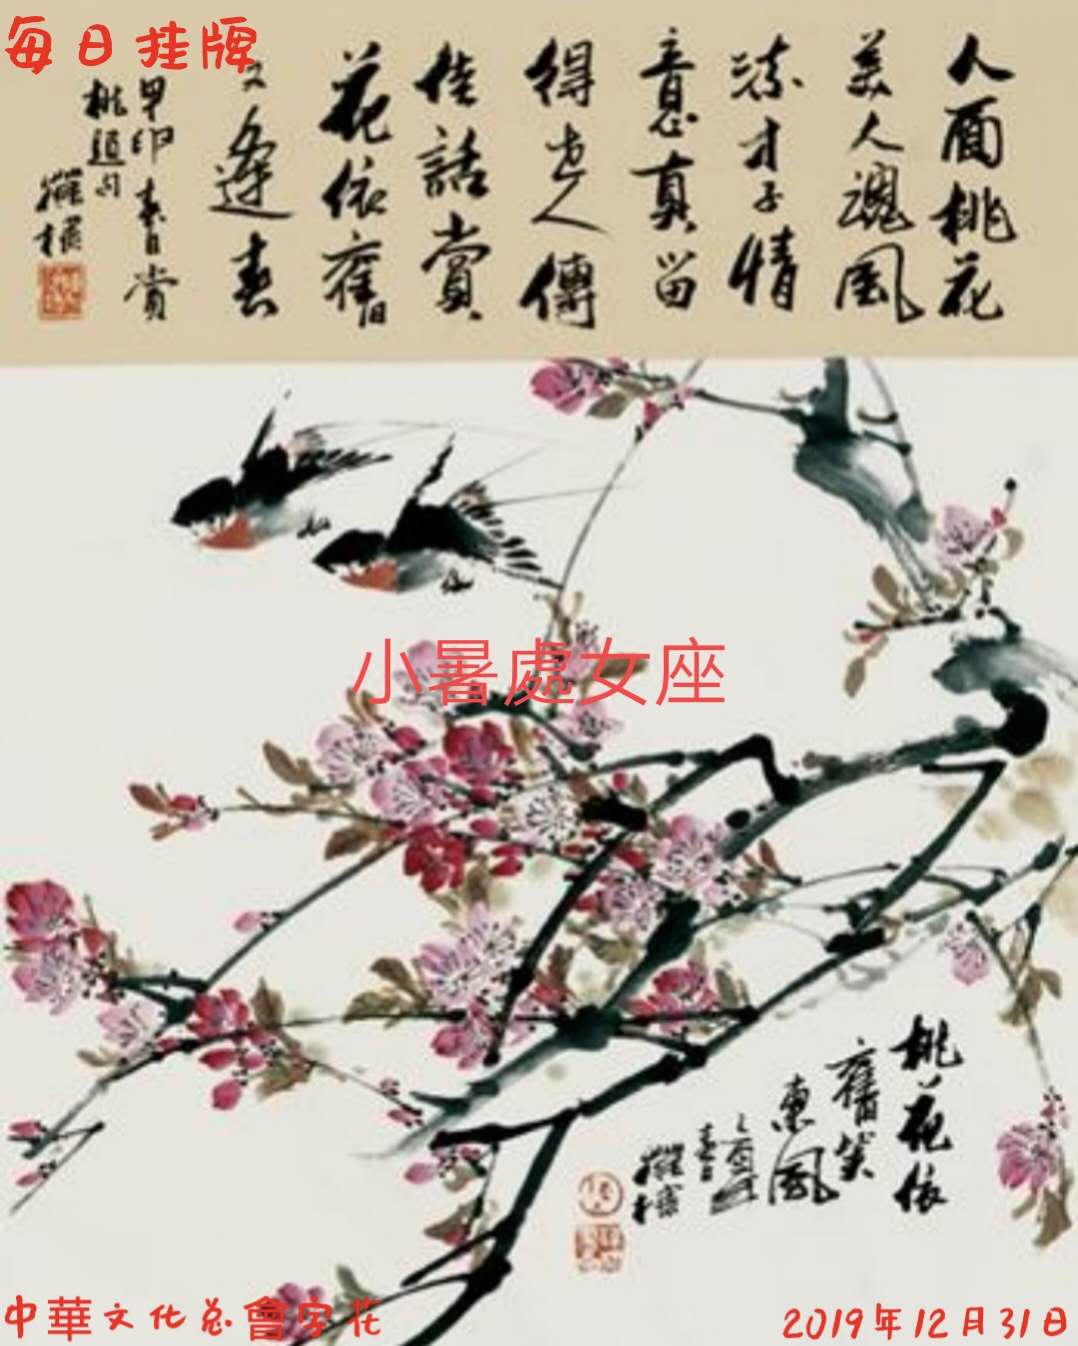 每日挂牌
人面桃花
美人魂風
流才子情
意真留
得世人傳
佳話賞
花依舊
又逢春
甲卯春日賞
桃題句
小暑處女座
桃花依
舊笑
東風
中華文化总會字花
2019年12月31日